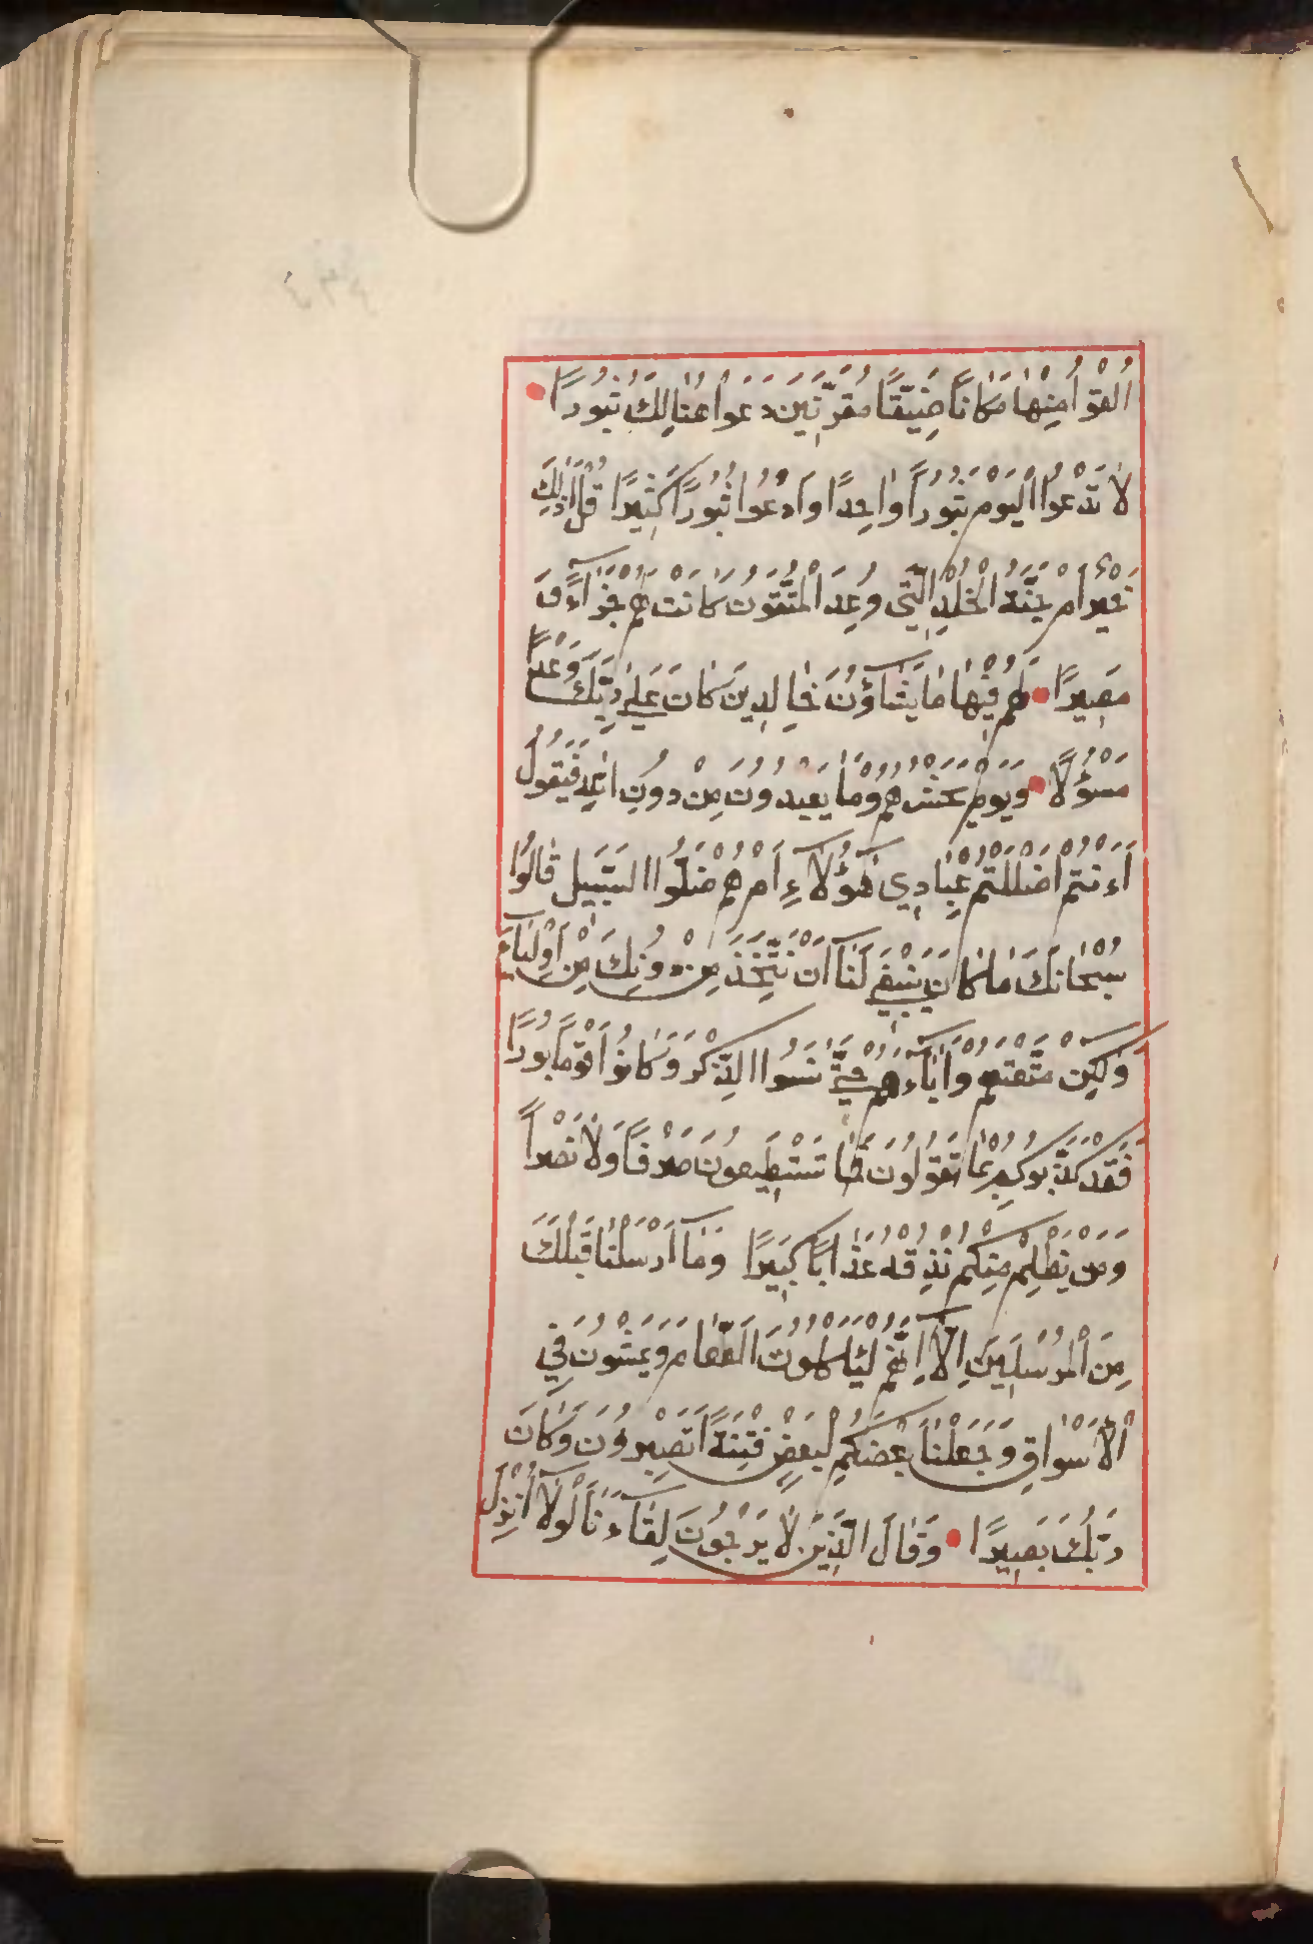 اُلْقُوْا مِنْهَا مَكَانًا ضَيِّقًا مُقَرَّنِينَ دَعَوْا هُنَالِكَ ثُبُورًا
لَا تَدْعُوا الْيَوْمَ ثُبُورًا وَاحِدًا وَادْعُوا ثُبُورًا كَثِيرًا قُلْ اَذٰلِكَ
خَيْرٌ اَمْ جَنَّةُ الْخُلْدِ الَّتِي وُعِدَ الْمُتَّقُونَ كَانَتْ لَهُمْ جَزَآءً وَ
مَصِيرًا لَهُمْ فِيْهَا مَا يَشَآؤُنَ خَالِدِينَ كَانَ عَلٰى رَبِّكَ وَعْدًا
مَسْؤُلًا وَيَوْمَ يَحْشُرُهُمْ وَمَا يَعْبُدُونَ مِنْ دُونِ اللّٰهِ فَيَقُولُ
ءَاَنْتُمْ اَضْلَلْتُمْ عِبَادِي هٰٓؤُلَآءِ اَمْ هُمْ ضَلُّوا السَّبِيلَ قَالُوا
سُبْحَانَكَ مَا كَانَ يَنْبَغِي لَنَآ اَنْ نَتَّخِذَ مِنْ دُونِكَ مِنْ اَوْلِيَآءَ
وَلٰكِنْ مَتَّعْتَهُمْ وَاٰبَآءَهُمْ حَتّٰى نَسُوا الذِّكْرَ وَكَانُوا قَوْمًا بُورًا
فَقَدْ كَذَّبُوكُمْ بِمَا تَقُولُونَ فَمَا تَسْتَطِيعُونَ صَرْفًا وَلَا نَصْرًا
وَمَنْ يَظْلِمْ مِنْكُمْ نُذِقْهُ عَذَابًا كَبِيرًا وَمَآ اَرْسَلْنَا قَبْلَكَ
مِنَ الْمُرْسَلِينَ اِلَّآ اِنَّهُمْ لَيَاْكُلُونَ الطَّعَامَ وَيَمْشُونَ فِي
الْاَسْوَاقِ وَجَعَلْنَا بَعْضَكُمْ لِبَعْضٍ فِتْنَةً اَتَصْبِرُونَ وَكَانَ
رَبُّكَ بَصِيرًا وَقَالَ الَّذِينَ لَا يَرْجُونَ لِقَآءَنَا لَوْلَآ اُنْزِلَ